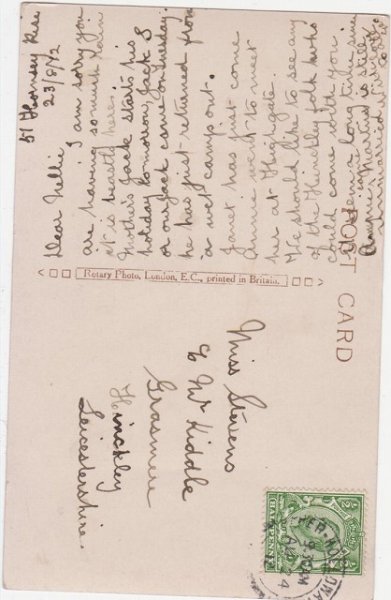 51 Hornsey Rise
23/8/12
Dear Nellie
I am sorry you
are having so much rain
it is beastly here.
Mother's Jack starts his
holiday tomorrow, Jack S
or our Jack came on Tuesday.
he has just returned from
a wet camp out.
Janet has just come
Annie went to meet
her at Highgate.
We should like to see any
of the Hinckley folk who
could come worth you
a long time since
is still
POST CARD
Rotary Photo, London, E.C., printed in Britain.
Miss Stevens
c/o Mr Kiddle
Grasmere
Hinckley
Leicestershire.